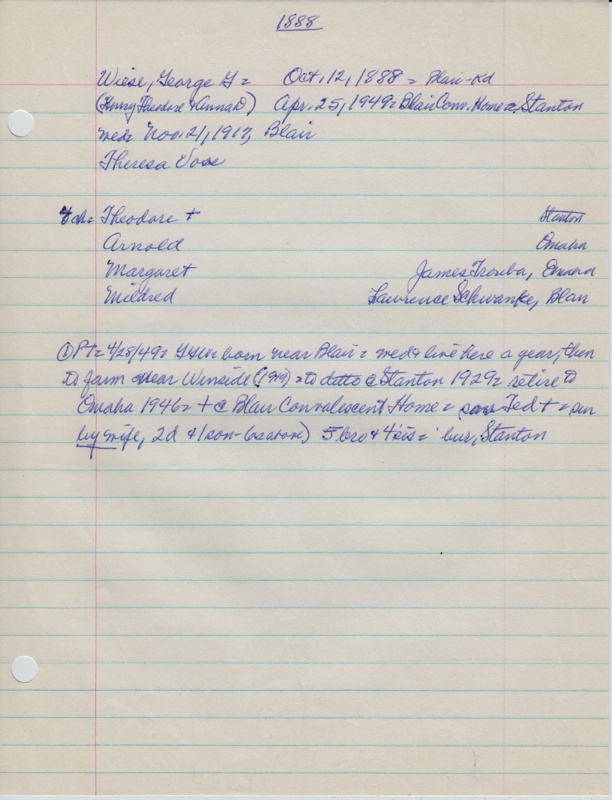 1888
Wiese, George G = Oct. 12, 1888 = Blair-Rd
(Henry Theodore & Hanna D) Apr. 25, 1949 = Blair Conv. Home = Stanton
med = Nov. 21, 1917, Blair
Theresa Vose
4 ch = Theodore + Stanton
Arnold Omaha
Margaret James Trouba, Omaha
Mildred Lawrence Schwanke, Blair
① PT = 4/28/49 = GGW = born near Blair = med & live here a year, then
to farm near Winside (1919) = to ditto @ Stanton 1929 = retire to
Omaha 1946 = + @ Blair Convalescent Home = son Ted + = sur
by wife, 2d & 1 son 5 bro & 4 sis = bur, Stanton